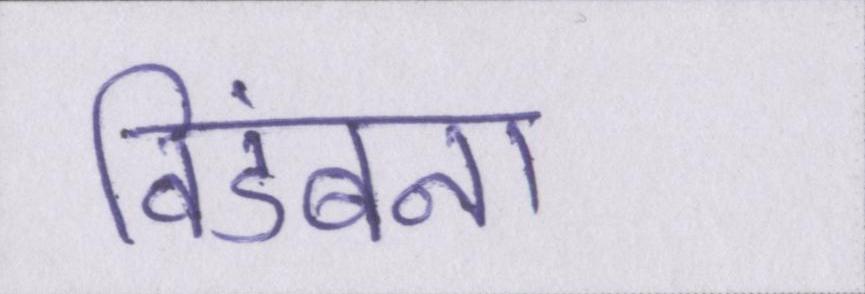 विडंबना